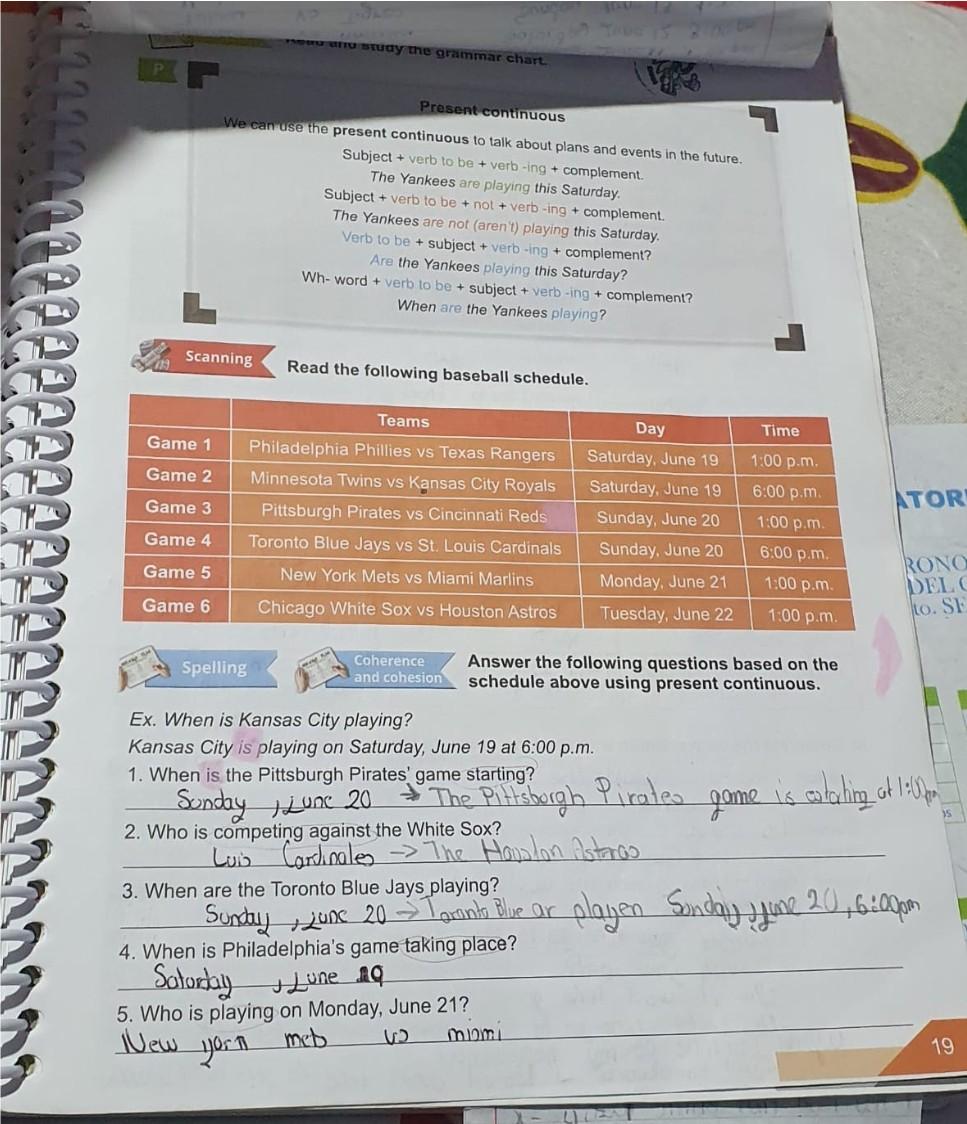 Read and study the grammar chart.
P
Present continuous
We can use the present continuous to talk about plans and events in the future.
Subject + verb to be + verb -ing + complement.
The Yankees are playing this Saturday.
Subject + verb to be + not + verb -ing + complement.
The Yankees are not (aren't) playing this Saturday.
Verb to be + subject + verb -ing + complement?
Are the Yankees playing this Saturday?
Wh- word + verb to be + subject + verb -ing + complement?
When are the Yankees playing?
Scanning Read the following baseball schedule.
Teams Day Time
Game 1 Philadelphia Phillies vs Texas Rangers Saturday, June 19 1:00 p.m.
Game 2 Minnesota Twins vs Kansas City Royals Saturday, June 19 6:00 p.m.
Game 3 Pittsburgh Pirates vs Cincinnati Reds Sunday, June 20 1:00 p.m.
Game 4 Toronto Blue Jays vs St. Louis Cardinals Sunday, June 20 6:00 p.m.
Game 5 New York Mets vs Miami Marlins Monday, June 21 1:00 p.m.
Game 6 Chicago White Sox vs Houston Astros Tuesday, June 22 1:00 p.m.
Spelling Coherence and cohesion Answer the following questions based on the
schedule above using present continuous.
Ex. When is Kansas City playing?
Kansas City is playing on Saturday, June 19 at 6:00 p.m.
1. When is the Pittsburgh Pirates' game starting?
Sunday, june 20 → The Pittsborgh Pirates game is at 1:00pm
2. Who is competing against the White Sox?
Luis Cardinales → The Houston Astros
3. When are the Toronto Blue Jays playing?
Sunday, june 20 → Toronto Blue ar playen Sonday, june 20, 6:00pm
4. When is Philadelphia's game taking place?
Satorday, june 19
5. Who is playing on Monday, June 21?
New yorn mets vs miomi
19
ATOR
RONO
DEL
to. SE